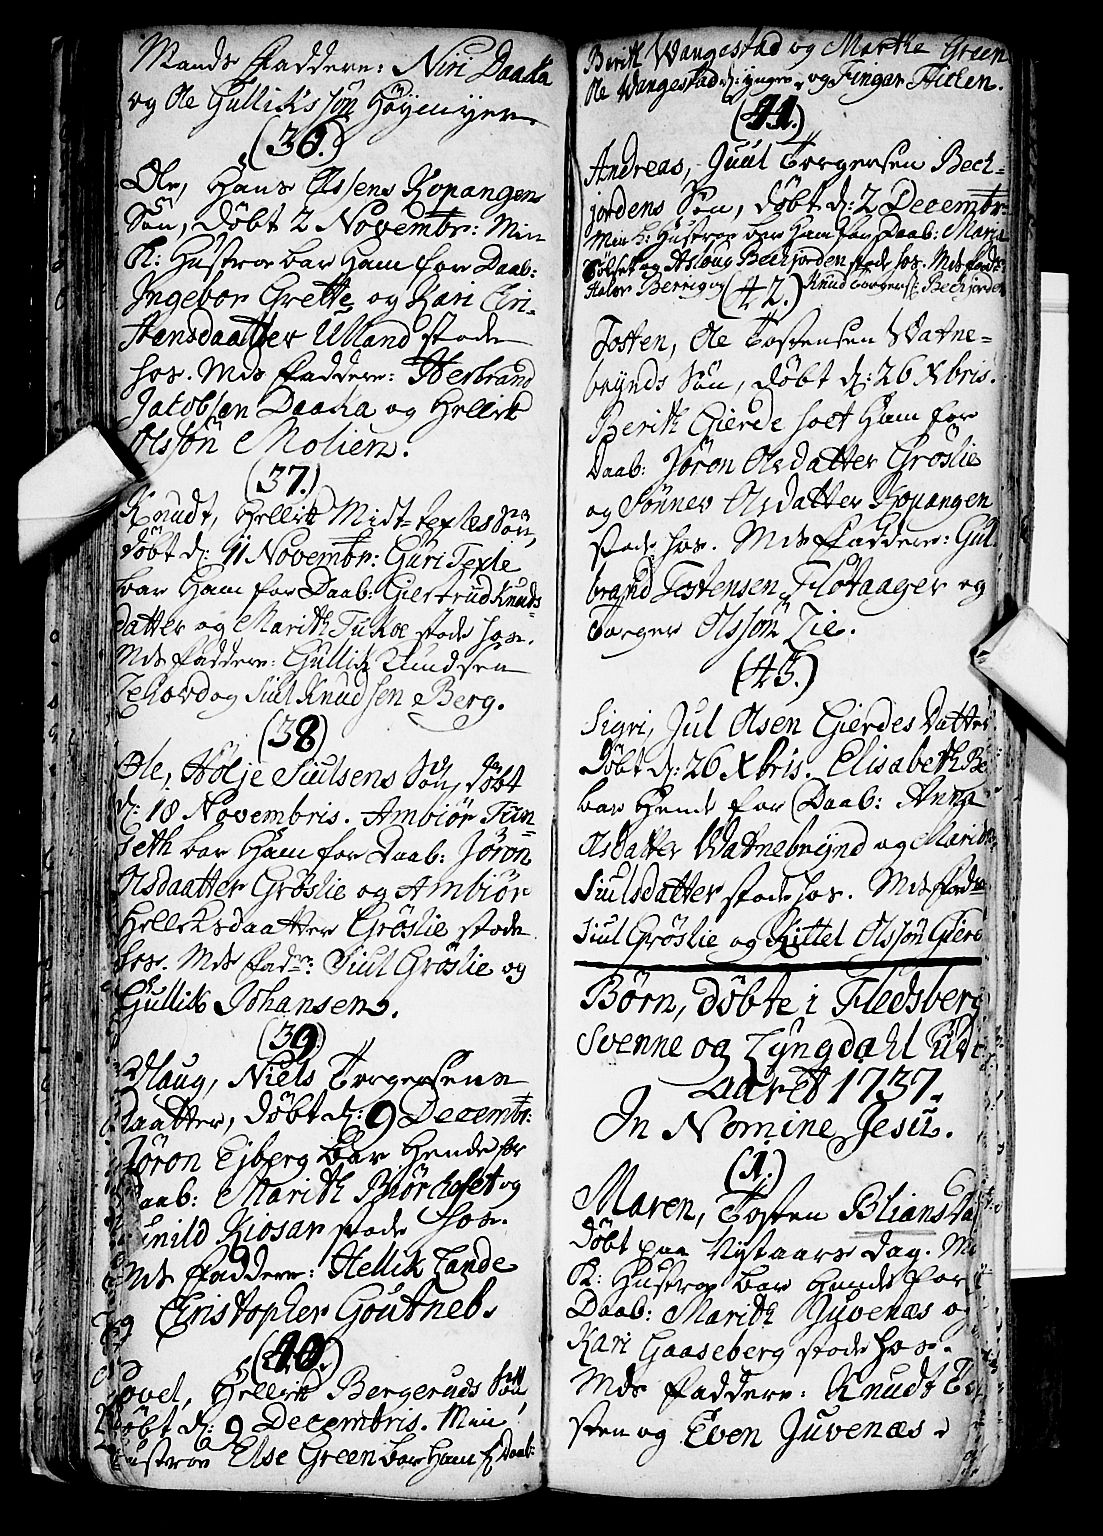 Mands Faddere: Niri Daaka
og Ole Gulliksøn Høymyer
(36.)
Ole, Hans Olsens Kopangens
Søn, døbt 2 Novembr: Min
K: Hustroe bar Ham for Daab:
Ingebor Grette og Kari Cri-
stensdaatter Ulland stode
hos. Mds Faddere: Herbrand
Jacobsen Daaka og Hellik
Olssøn Molien.
(37.)
Knudt, Hellik Midt-texles Søn,
døbt d: 11 Novembr: Guri Texle
bar Ham for Daab: Giertrud Knuds-
datter og Marith stode hos.
Mds Faddere: Gullik Knudsen
og Siul Knudsen Berg.
(38)
Ole, Hølje Siulsens Søn, døbt
d: 18 Novembris. Ambiør Tun-
seth bar Ham for Daab: Jøron
Olsdaatter Grøslie og Ambiør
Helleksdaatter Grøslie stode
hos. Mds Fadre: Siul Grøslie og
Gullik Johansen.
(39)
Olaug, Niels Torgersens
Daatter, døbt d: 9 Decembr:
Jøron Ejberg bar Hende for
Daab: Marith Biørkeset og
Gunild Kiosar stode hos.
Mds Faddere: Hellik Lande
og Christopher Goutneb.
(40.)
Povel, Hellik Bergeruds Søn,
døbt d: 9 Decembris. Min
Hustroe Else Green bar Ham f Daab:
Berith Wangestad og Marthe Green
Ole Wangestad d: yngre og Fingar Hicken.
(41.)
Andreas, Juul Torgersen Bech-
jordens Søn, døbt d: 2 Decembr:
Min k: Hustroe bar Ham for Daab: Maria
og Asloug Bechjorden stode hos. Mds Fadr:
Halvor Berrig og (42.) Knud Torgers: Bechjorden
Tosten, Ole Tostensen Watne-
brynds Søn, døbt d: 26 Xbris.
Berith Gierde holt Ham for
Daab: Jøron Olsdatter Grøslie
og Sønnev Olsdatter Kopangen
stode hos. Mds Faddere: Gul-
brand Tostensen Flotaager og
Torger Olssøn Lie.
(43.)
Sigri, Jul Olsen Gierdes Datter
Døbt d: 26 Xbris. Elisabeth Be
bar Hende for Daab: Anna
Olsdatter Watnebrynd og Marith
Siulsdatter stode hos. Mds Fadre
Siul Grøslie og Kittel Olssøn Gierd
Børn, døbte i Fledsberg
Svenne og Lyngdahl Udi
Aaret 1737.
In Nomine Jesu.
(1.)
Maren, Tosten Blians Da
Døbt paa Nytaars dag. Mi
K: Hustroe bar Hende for
Daab: Marith Juvenæs og
Kari Gaaseberg stode hos.
Mds Faddere: Knudt To-
sten og Even Juvenæs.